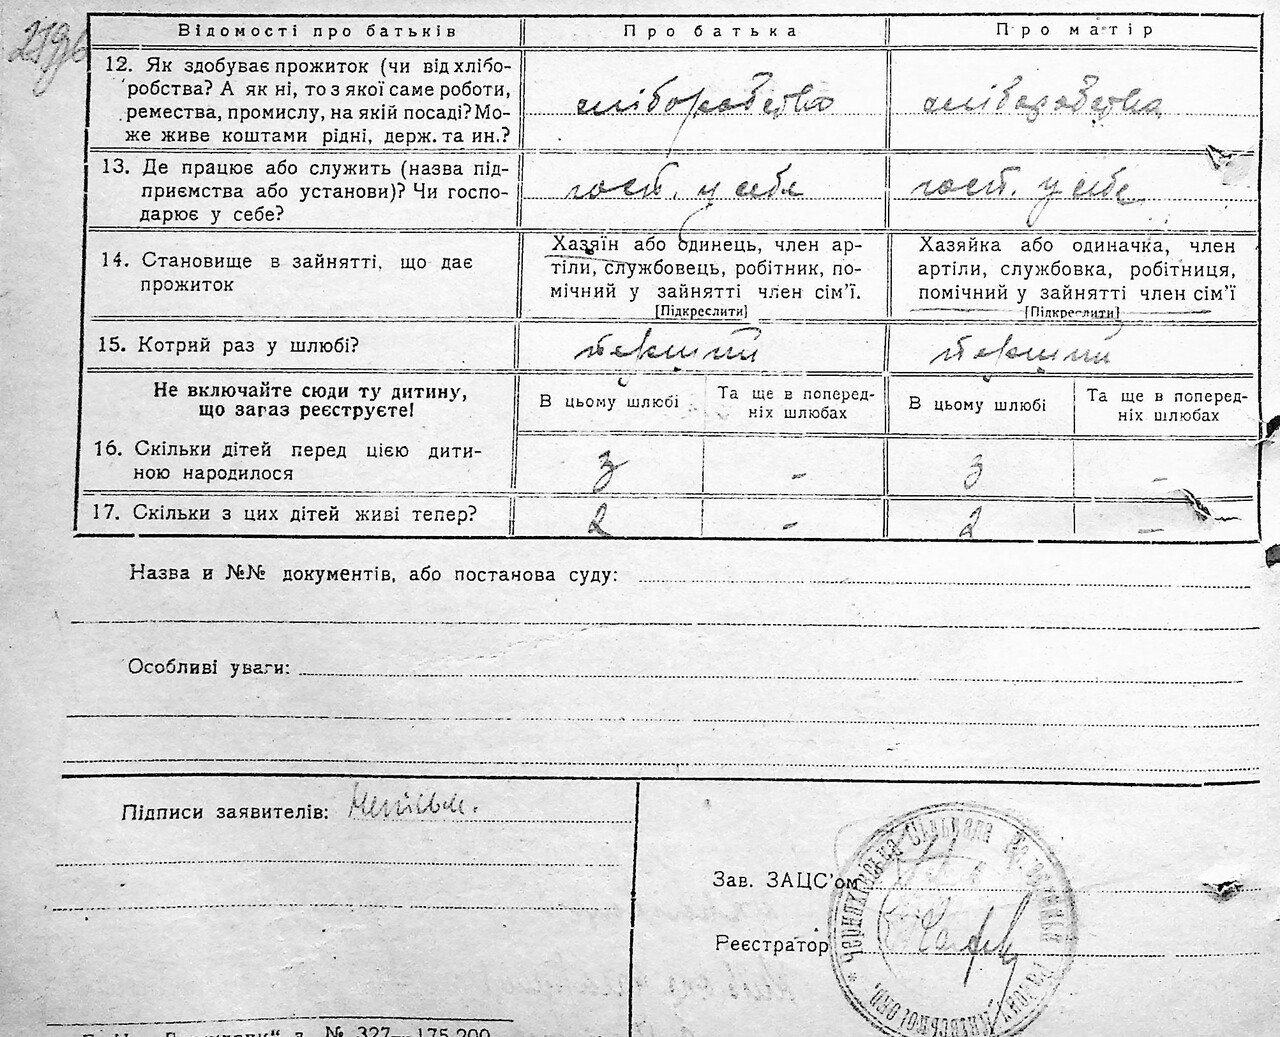 Відомості про батьків Про батька Про матір
12. Як здобуває прожиток (чи від хлібо-
робства? А як ні, то з якої саме роботи,
ремества, промислу, на якій посаді? Мо-
же живе коштами рідні, держ. та ин.?
хліборобство хліборобства
13. Де працює або служить (назва під-
приємства або установи)? Чи госпо-
дарює у себе?
госп. у себе госп. у себе
14. Становище в зайнятті, що дає
прожиток
Хазяїн або одинець, член ар-
тіли, службовець, робітник, по-
мічний у зайнятті член сім'ї.
[Підкреслити]
Хазяйка або одиначка, член
артіли, службовка, робітниця,
помічний у зайнятті член сім'ї
[Підкреслити]
15. Котрий раз у шлюбі? перший перший
Не включайте сюди ту дитину,
що загаз реєструєте!
В цьому шлюбі
Та ще в поперед-
ніх шлюбах
В цьому шлюбі
Та ще в поперед-
ніх шлюбах
16. Скільки дітей перед цією дити-
ною народилося
3 - 3 -
17. Скільки з цих дітей живі тепер? 2 - 2 -
Назва и №№ документів, або постанова суду:
Особливі уваги:
Підписи заявителів: Неписьм.
Зав. ЗАЦС'ом
Реєстратор
№ 327—175.200